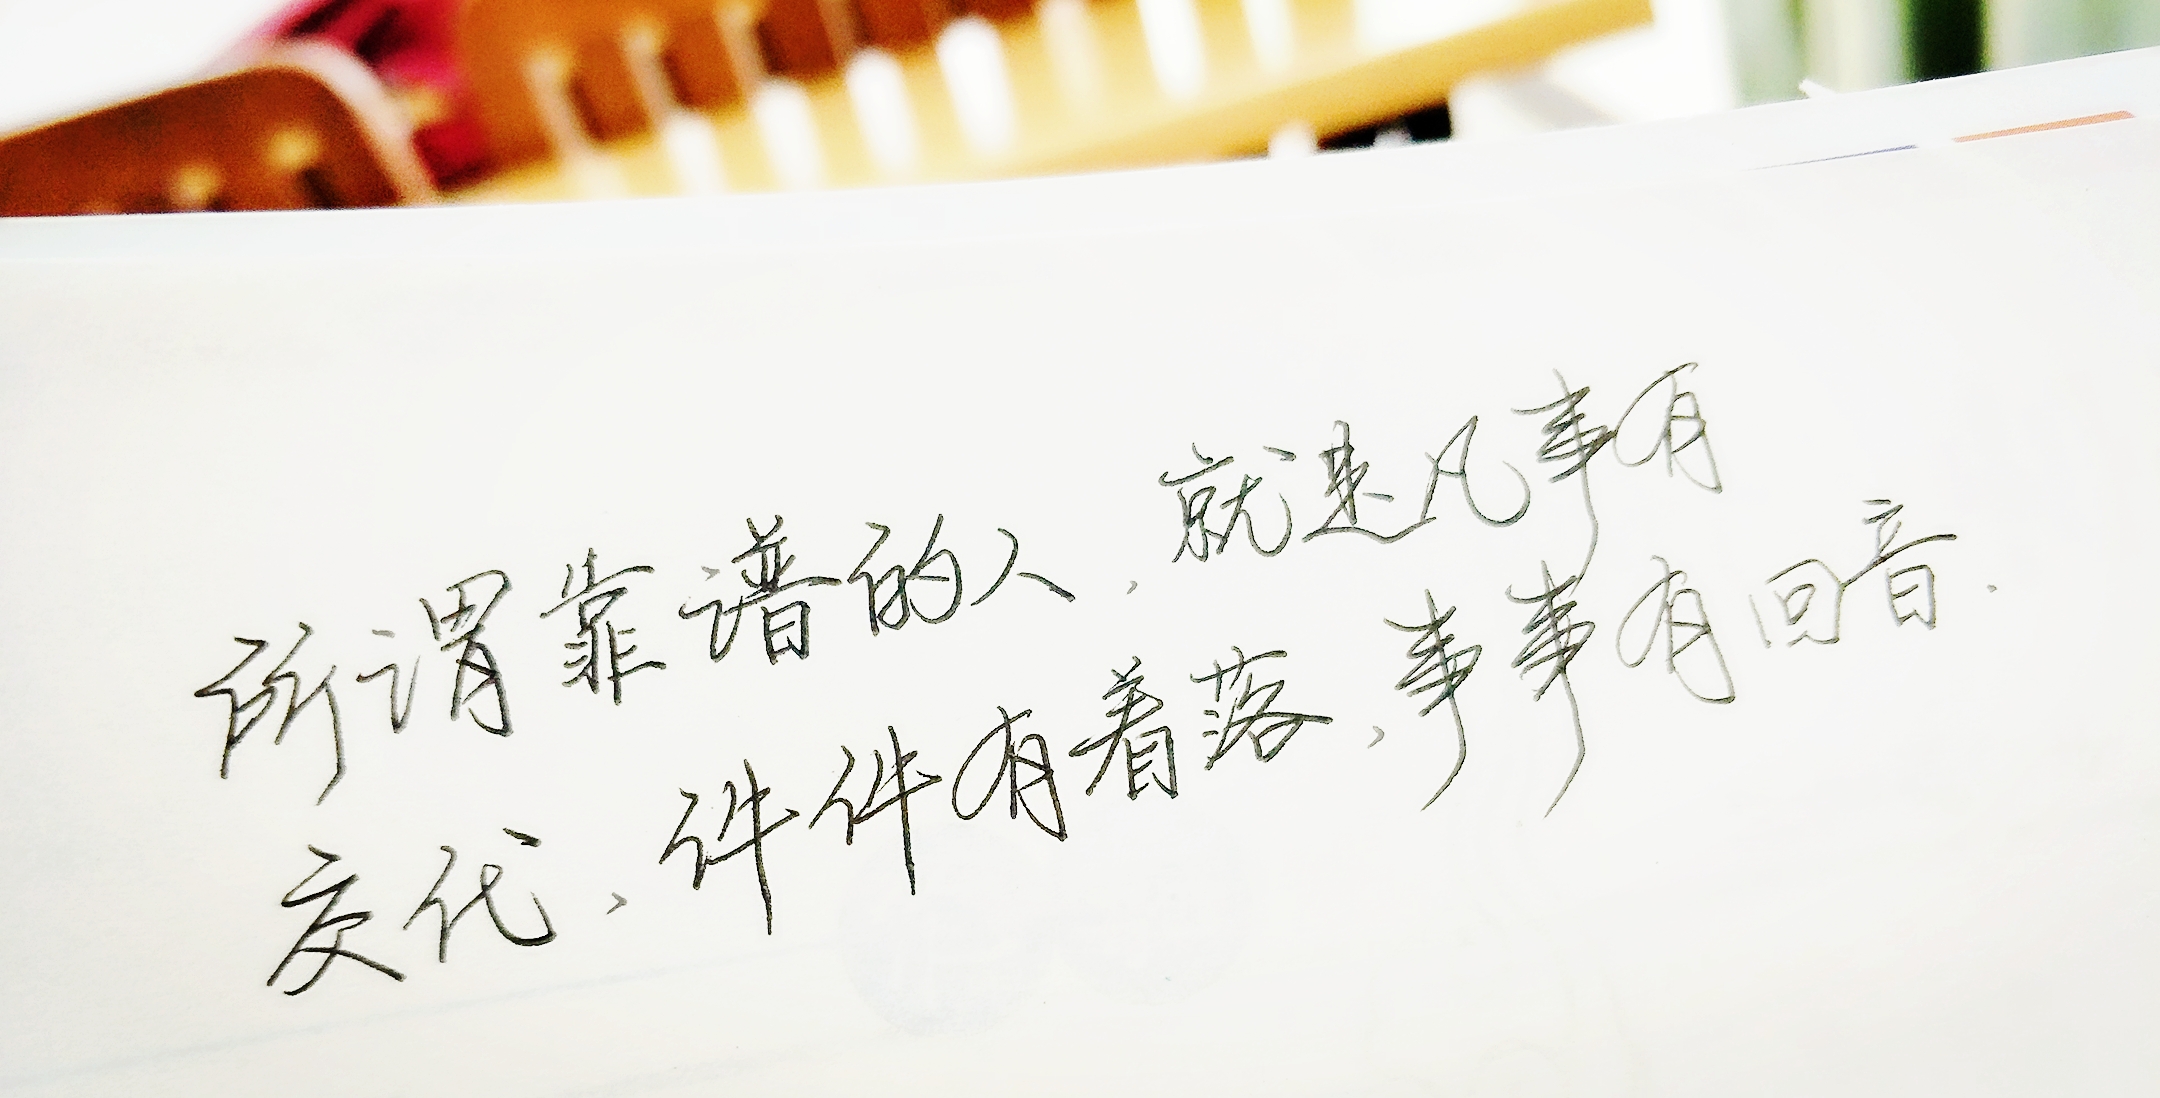 所谓靠谱的人，就是凡事有
交代，件件有着落，事事有回音.